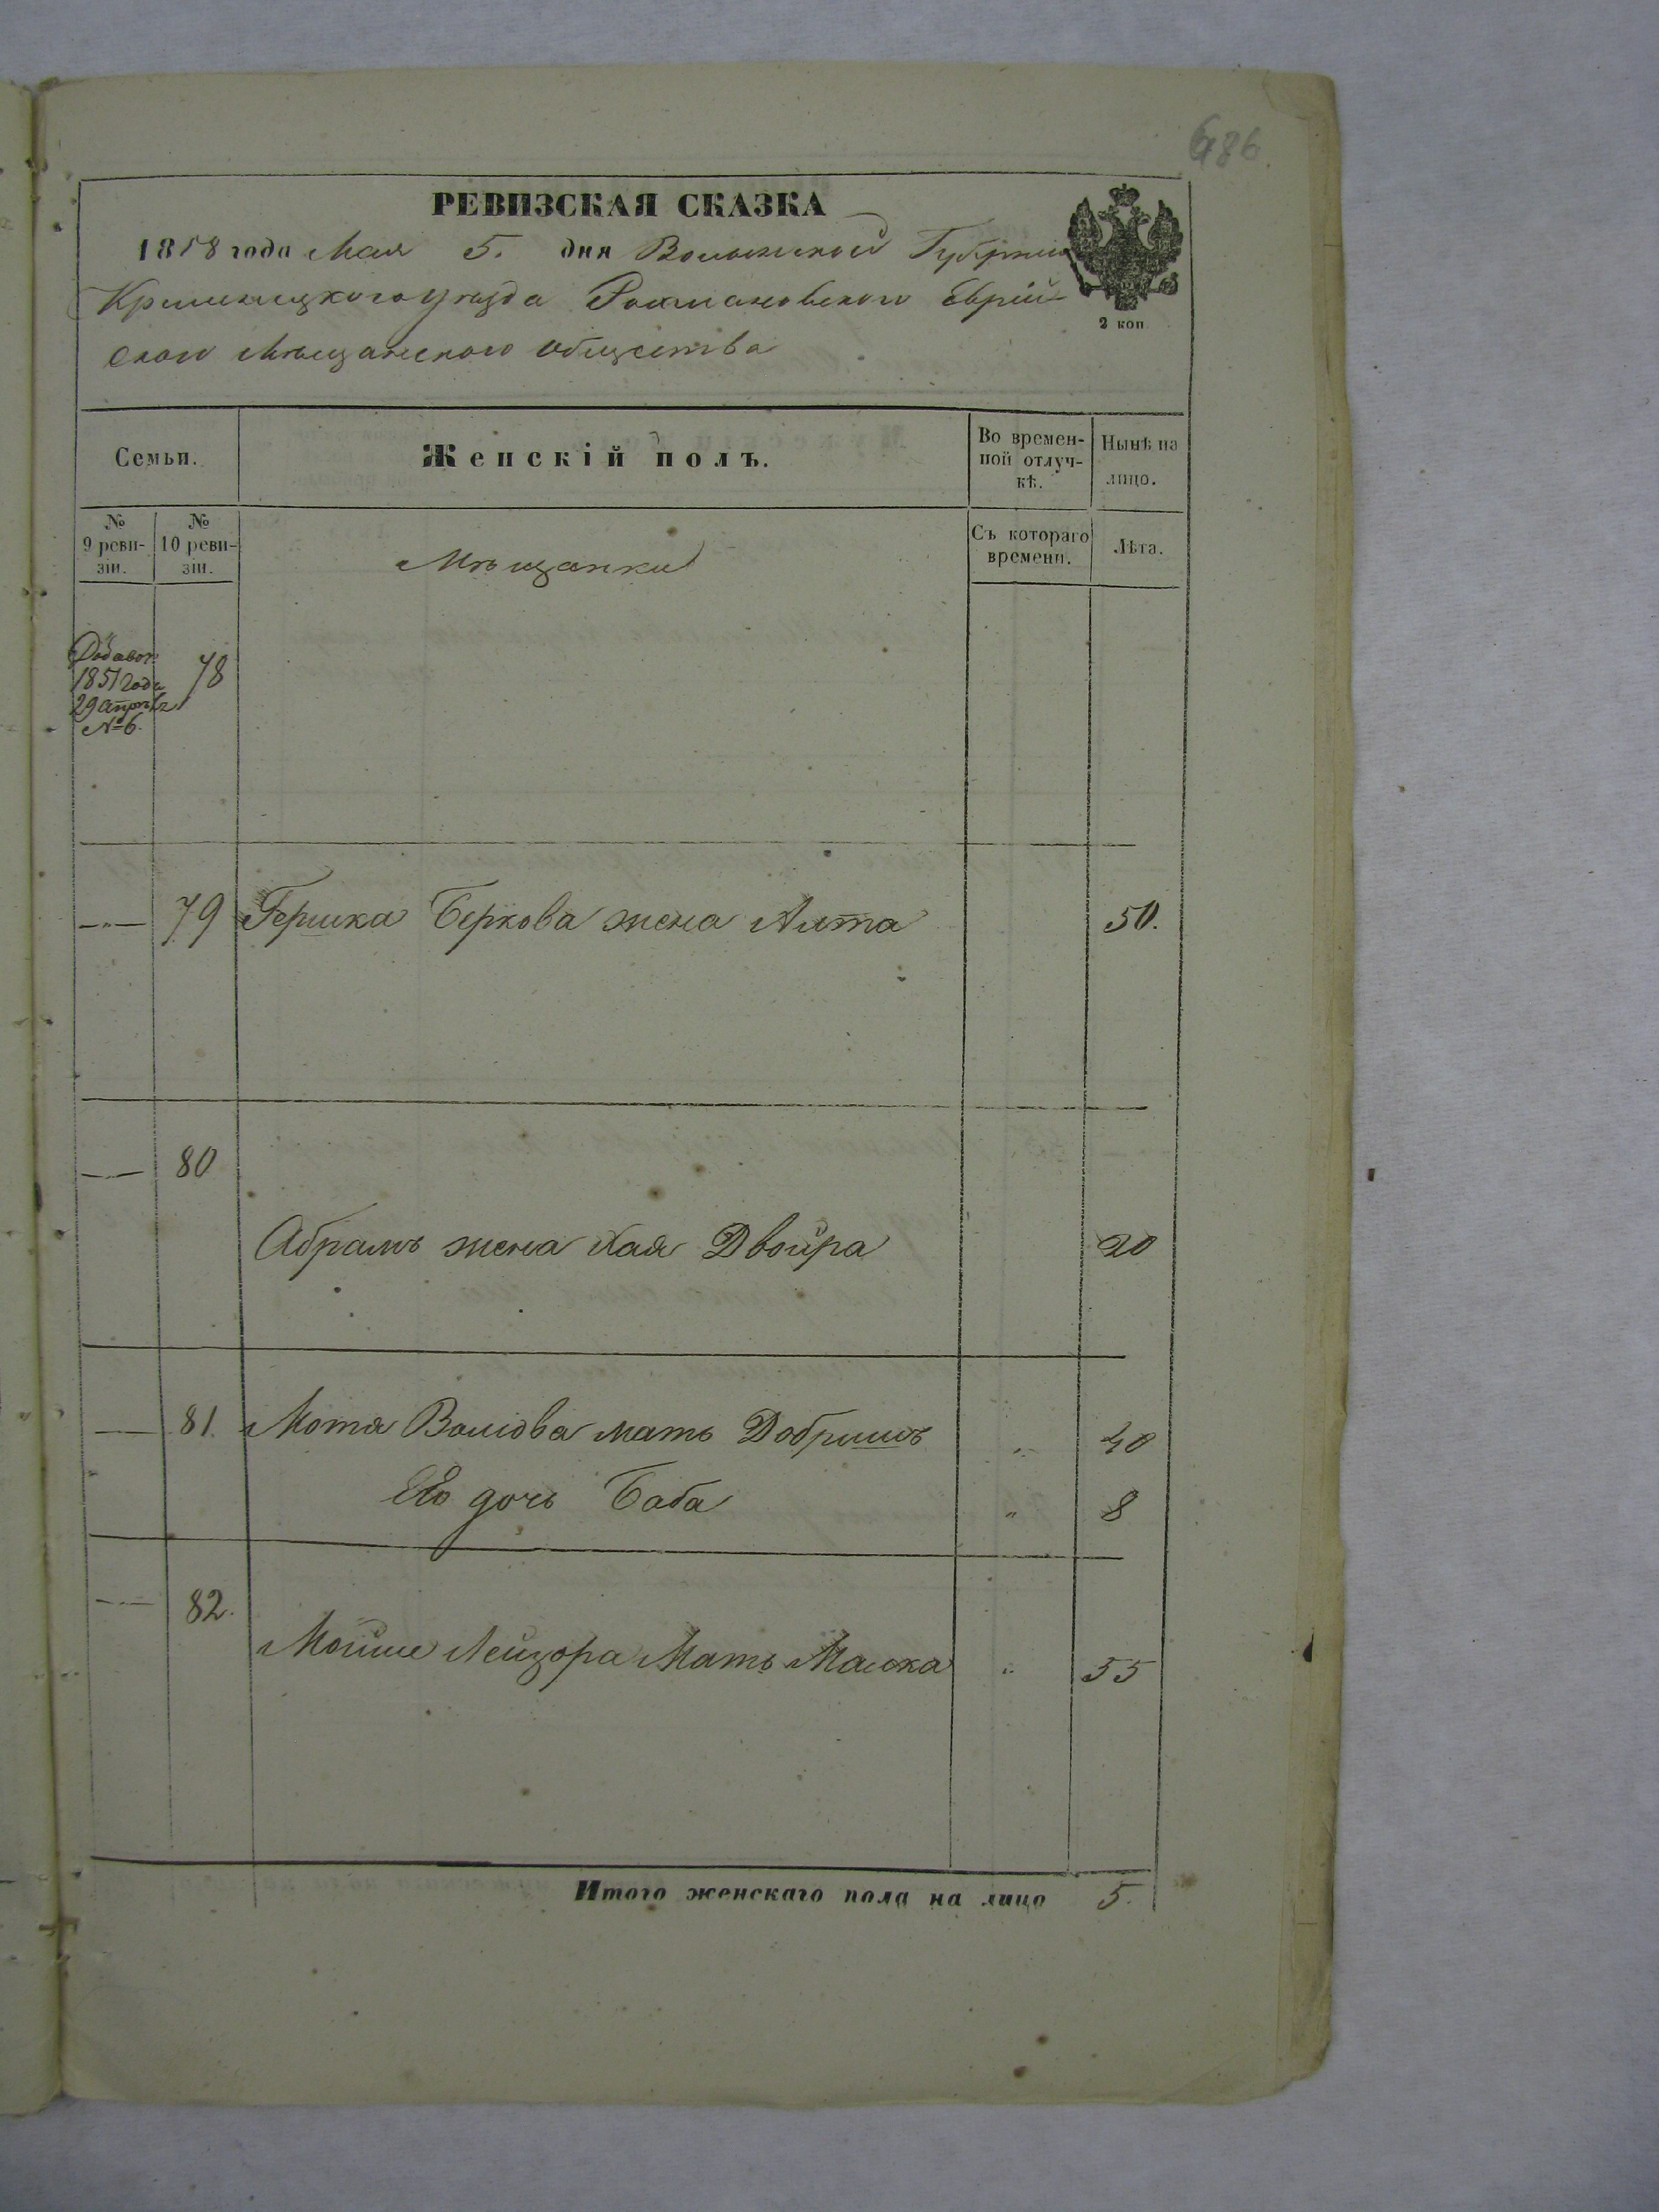 486.
РЕВИЗСКАЯ СКАЗКА
1858 года Мая 5. дня Волынской Губерніи
Кременецкого уезда Рохмановского Еврей-
скаго Мѣщанского общества
2 коп
Семьи.
Женскій полъ.
Во времен-
ной отлуч-
кѣ.
Нынѣ на
лицо.
№
9 реви-
зіи.
№
10 реви-
зіи.
Мѣщанки
Съ котораго
времени.
Лѣта.
Добавоч.
1851 года
29 апрѣля
№ 6.
78
79 Гершка Беркова жена Алта 50.
80
Абрамъ жена Хая Двойра 20
81. Мотя Волкова мать Добришъ " 40
Его дочь Баба " 8
82.
Мойше Лейзора Мать Малка " 55
Итого женскаго пола на лицо 5.